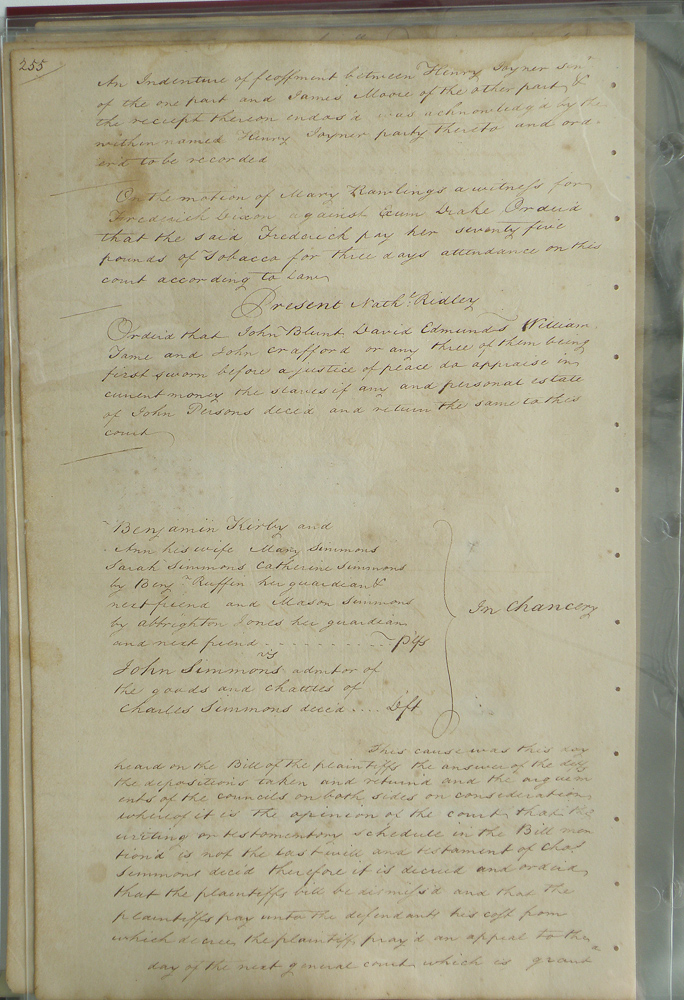 255
An Indenture of feoffment between Henry Joyner Senr
of the one part and James Moore of the other part &
the reciept thereon endos'd was acknowledg'd by the
within named Henry Joyner party thereto and ord-
er'd to be recorded
On the motion of Mary Rawlings a witness for
Frederick Dixon against Drake Order'd
that the said Frederick pay her seventy five
pounds of Tobacco for three days attendance on this
court according to Law
Present Nathl. Ridley
Order'd that John Blunt David Edmunds William
Tame and John Crafford or any three of them being
first sworn before a justice of peace do appraise in
current money the slaves if any and personal estate
of John Persons deced and return the same to this
court
Benjamin Kirby and
Ann his wife Mary Simmons
Sarah Simmons Catherine Simmons
by Benjn Ruffin her guardian &
next friend and Mason Simmons
by Albrighton Jones her guardian
and next friend . . . . . . . . . . Plfs
vs
In Chancery
John Simmons admtor of
the goods and chattles of
Charles Simmons deced .... Dft
This cause was this day
heard on the Bill of the plaintiffs the answer of the deft
the depositions taken and return'd and the argum
ents of the councils on both sides on consideration
whereof it is the opinion of the court that the
writing or testamentory schedule in the Bill men
tion'd is not the last will and testament of Chas
Simmons deced therefore it is decreed and orderd
that the plaintiffs bill be dismiss'd and that the
plaintiffs pay unto the defendant his cost from
which decree the plaintiffs pray'd an appeal to the
day of the next general court which is grant